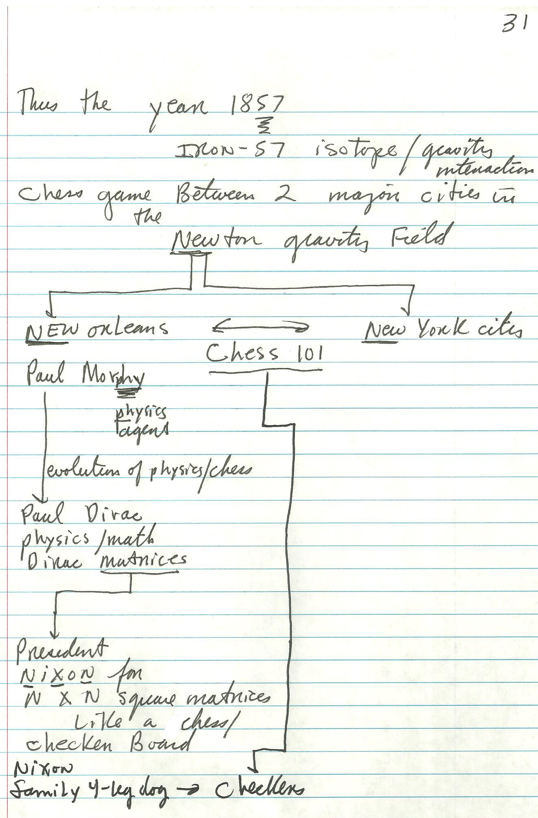 31
Thus the year 1857
IRON-57 isotope/gravity
interaction
Chess game Between 2 major cities in
the
Newton gravity Field
NEW orleans
New York cites
Chess 101
Paul Morphy
physics
agent
evolution of physics/chess
Paul Dirac
physics/math
Dirac matrices
President
NiXoN for
N X N square matrices
Like a chess/
checker Board
Nixon
family 4-leg dog → checkers